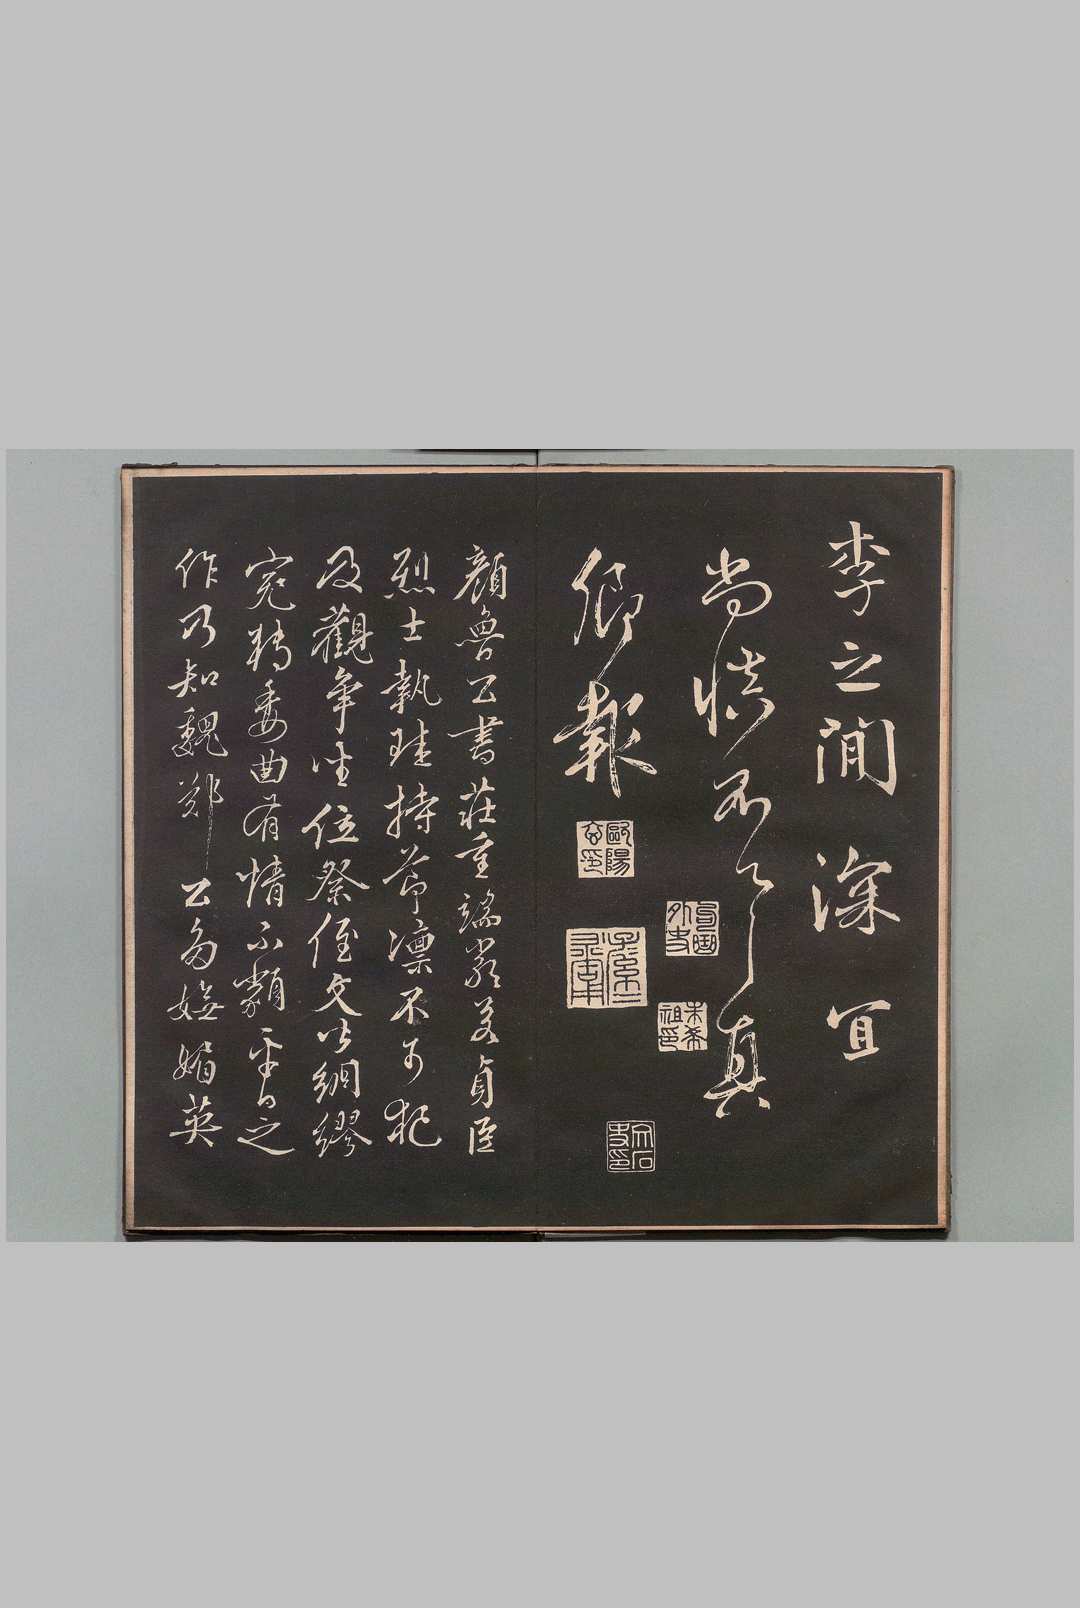 李之間深宜
尚慎不次真
卿報
歐陽玄印
顏魯公書莊重端嚴若貞臣
烈士執珪持節凜不可犯
及觀爭坐位祭侄文皆綢繆
宛轉委曲有情不類平日之
作乃知魏鄭公為嫵媚英